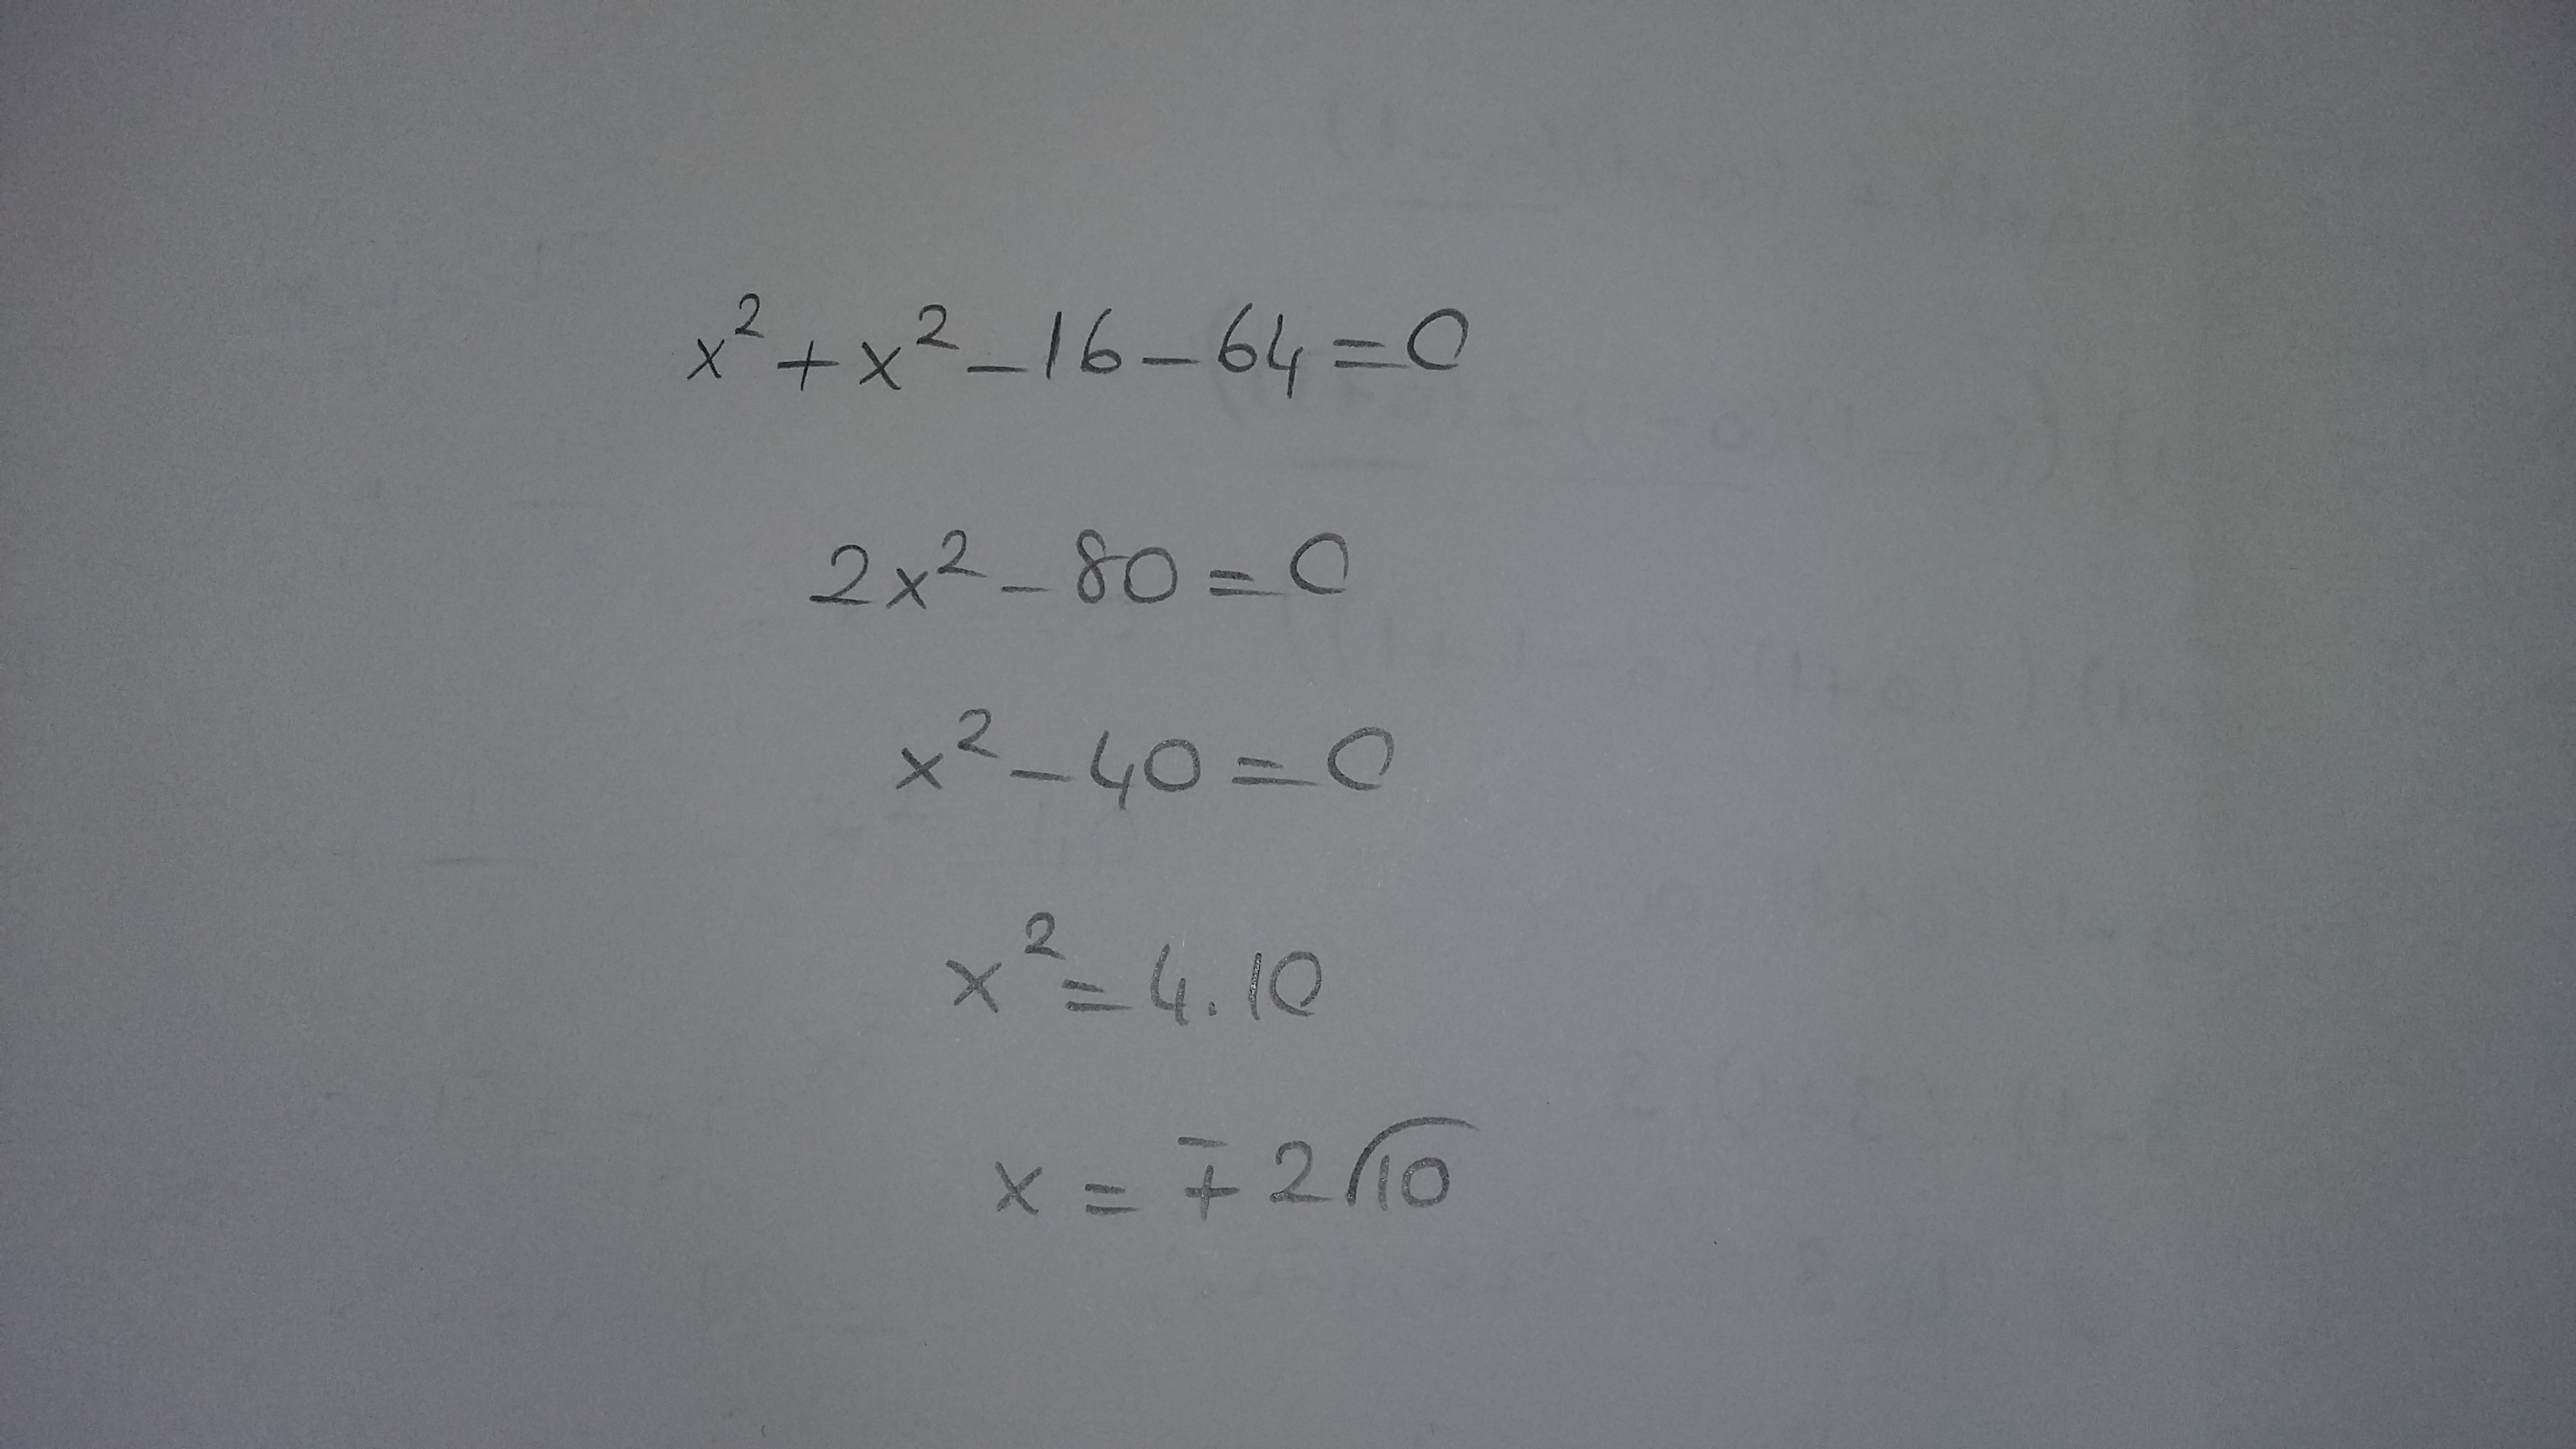 x² + x² - 16 - 64 = 0
2x² - 80 = 0
x² - 40 = 0
x² = 4.10
x = ∓ 2√10